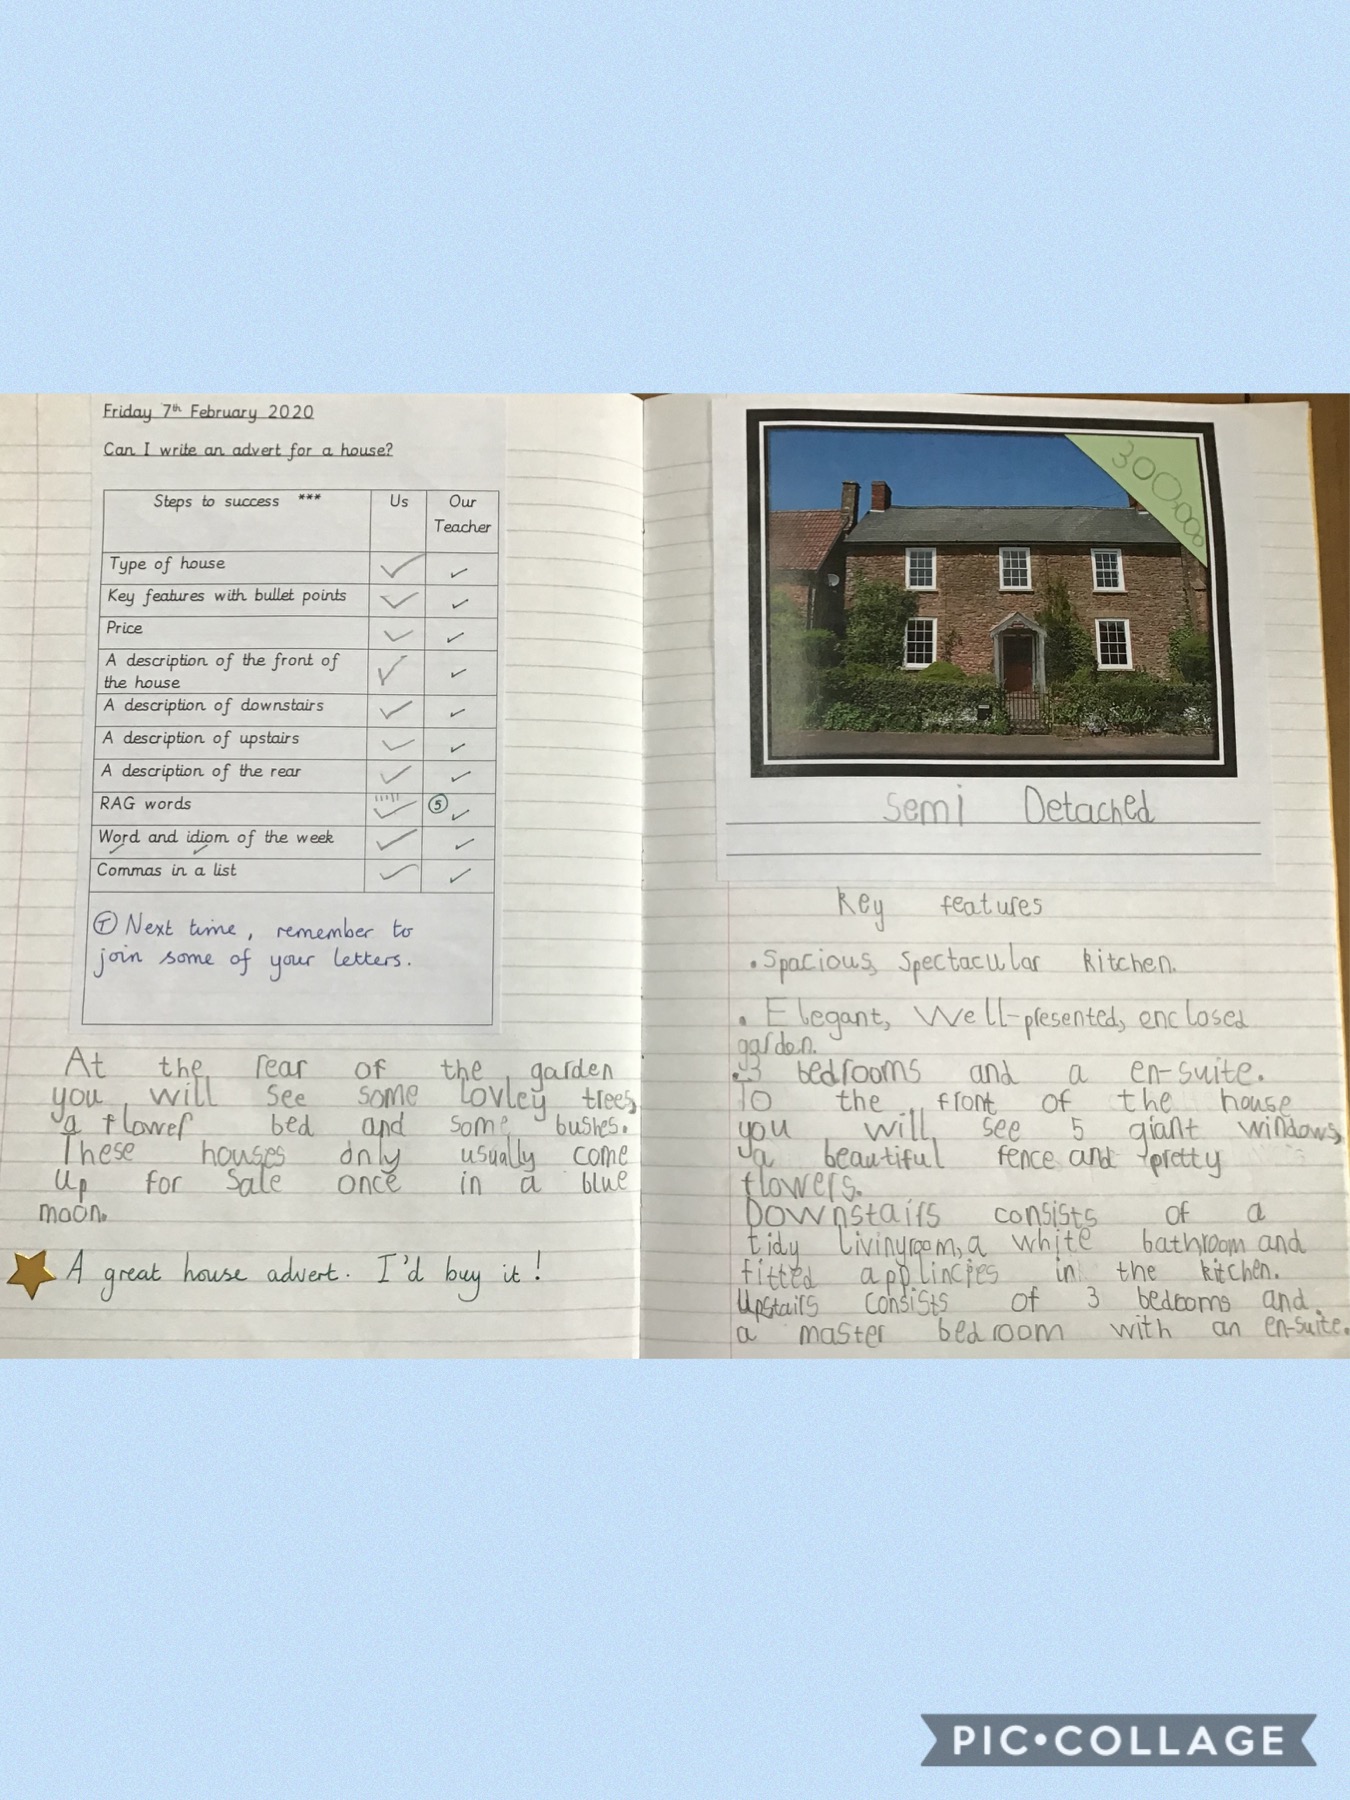 Friday 7th February 2020
Can I write an advert for a house?
Steps to success *** Us Our Teacher
Type of house
Key features with bullet points
Price
A description of the front of
the house
A description of downstairs
A description of upstairs
A description of the rear
RAG words 5
Word and idiom of the week
Commas in a list
T Next time, remember to
join some of your letters.
At the rear of the garden
you will see some lovley trees,
a flower bed and some bushes.
These houses only usually come
up for sale once in a blue
moon.
A great house advert. I'd buy it!
300,000
Semi Detached
Key features
• Spacious, spectacular kitchen.
• Elegant, Well-presented, enclosed
garden.
• 3 bedrooms and a en-suite.
To the front of the house
you will see 5 giant windows,
a beautiful fence and pretty
flowers.
Downstairs consists of a
tidy livingroom, a white bathroom and
fitted applincies in the kitchen.
Upstairs consists of 3 bedrooms and
a master bedroom with an en-suite.
PIC•COLLAGE